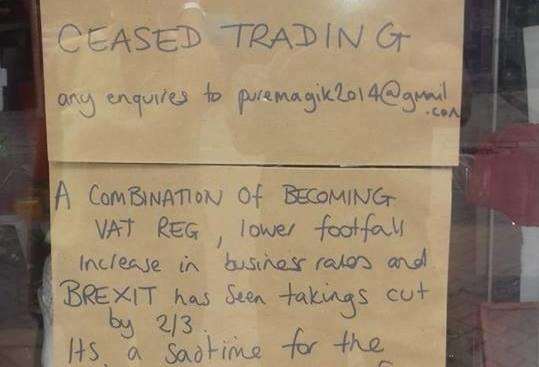 CEASED TRADING
any enquires to puremagik2014@gmail
.com
A COMBINATION Of BECOMING
VAT REG, lower footfall
Increase in business rates and
BREXIT has seen takings cut
by 2/3
Its a sadtime for the